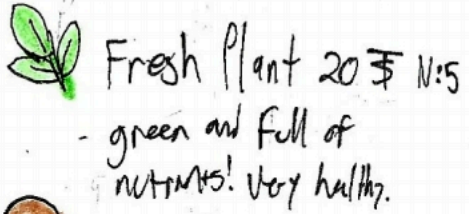 Fresh Plant 20 ₮ N:5
- green and full of
nutrients! Very healthy.